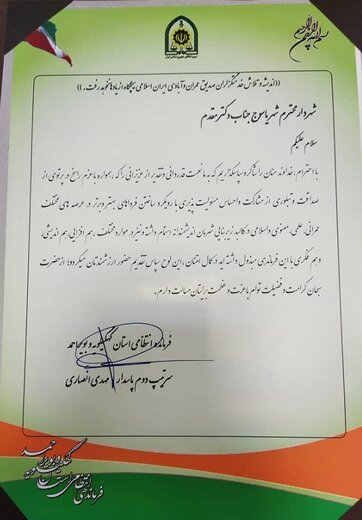 بسم الله الرحمن الرحیم
((اندیشه و تلاش خدمتگزاران صدیق عمران و آبادی ایران اسلامی هیچگاه از یادها نخواهد رفت.))
شهردار محترم شهر یاسوج جناب دکتر مقدم
سلام علیکم
با احترام، خداوند منان را شاکر و سپاسگذاریم که به ما نعمت قدردانی و تقدیر از عزیزانی را که همواره با عزم راسخ در پرتوی از
صداقت و تبلوری از مشارکت و احساس مسئولیت پذیری با رویکرد ساختن فردای بهتر و برتر در عرصه های مختلف
عمرانی، علمی، معنوی و اسلامی در کالبد زیربنایی شهرمان اندیشمندانه اهتمام داشته و نیز در موارد مختلف، هم افزایی، هم اندیشی،
و هم فکری با این فرماندهی مبذول داشته اید در کمال امتنان، این لوح سپاس تقدیم حضور ارزشمندتان میگردد؛ از حضرت
سبحان کرامت و فضیلت توام با عزت و عظمت برایتان مسالت دارم.
فرمانده انتظامی استان کهگیلویه و بویراحمد
سرتیپ دوم پاسدار مهدی انصاری
فرماندهی انتظامی استان
کهگیلویه و بویراحمد